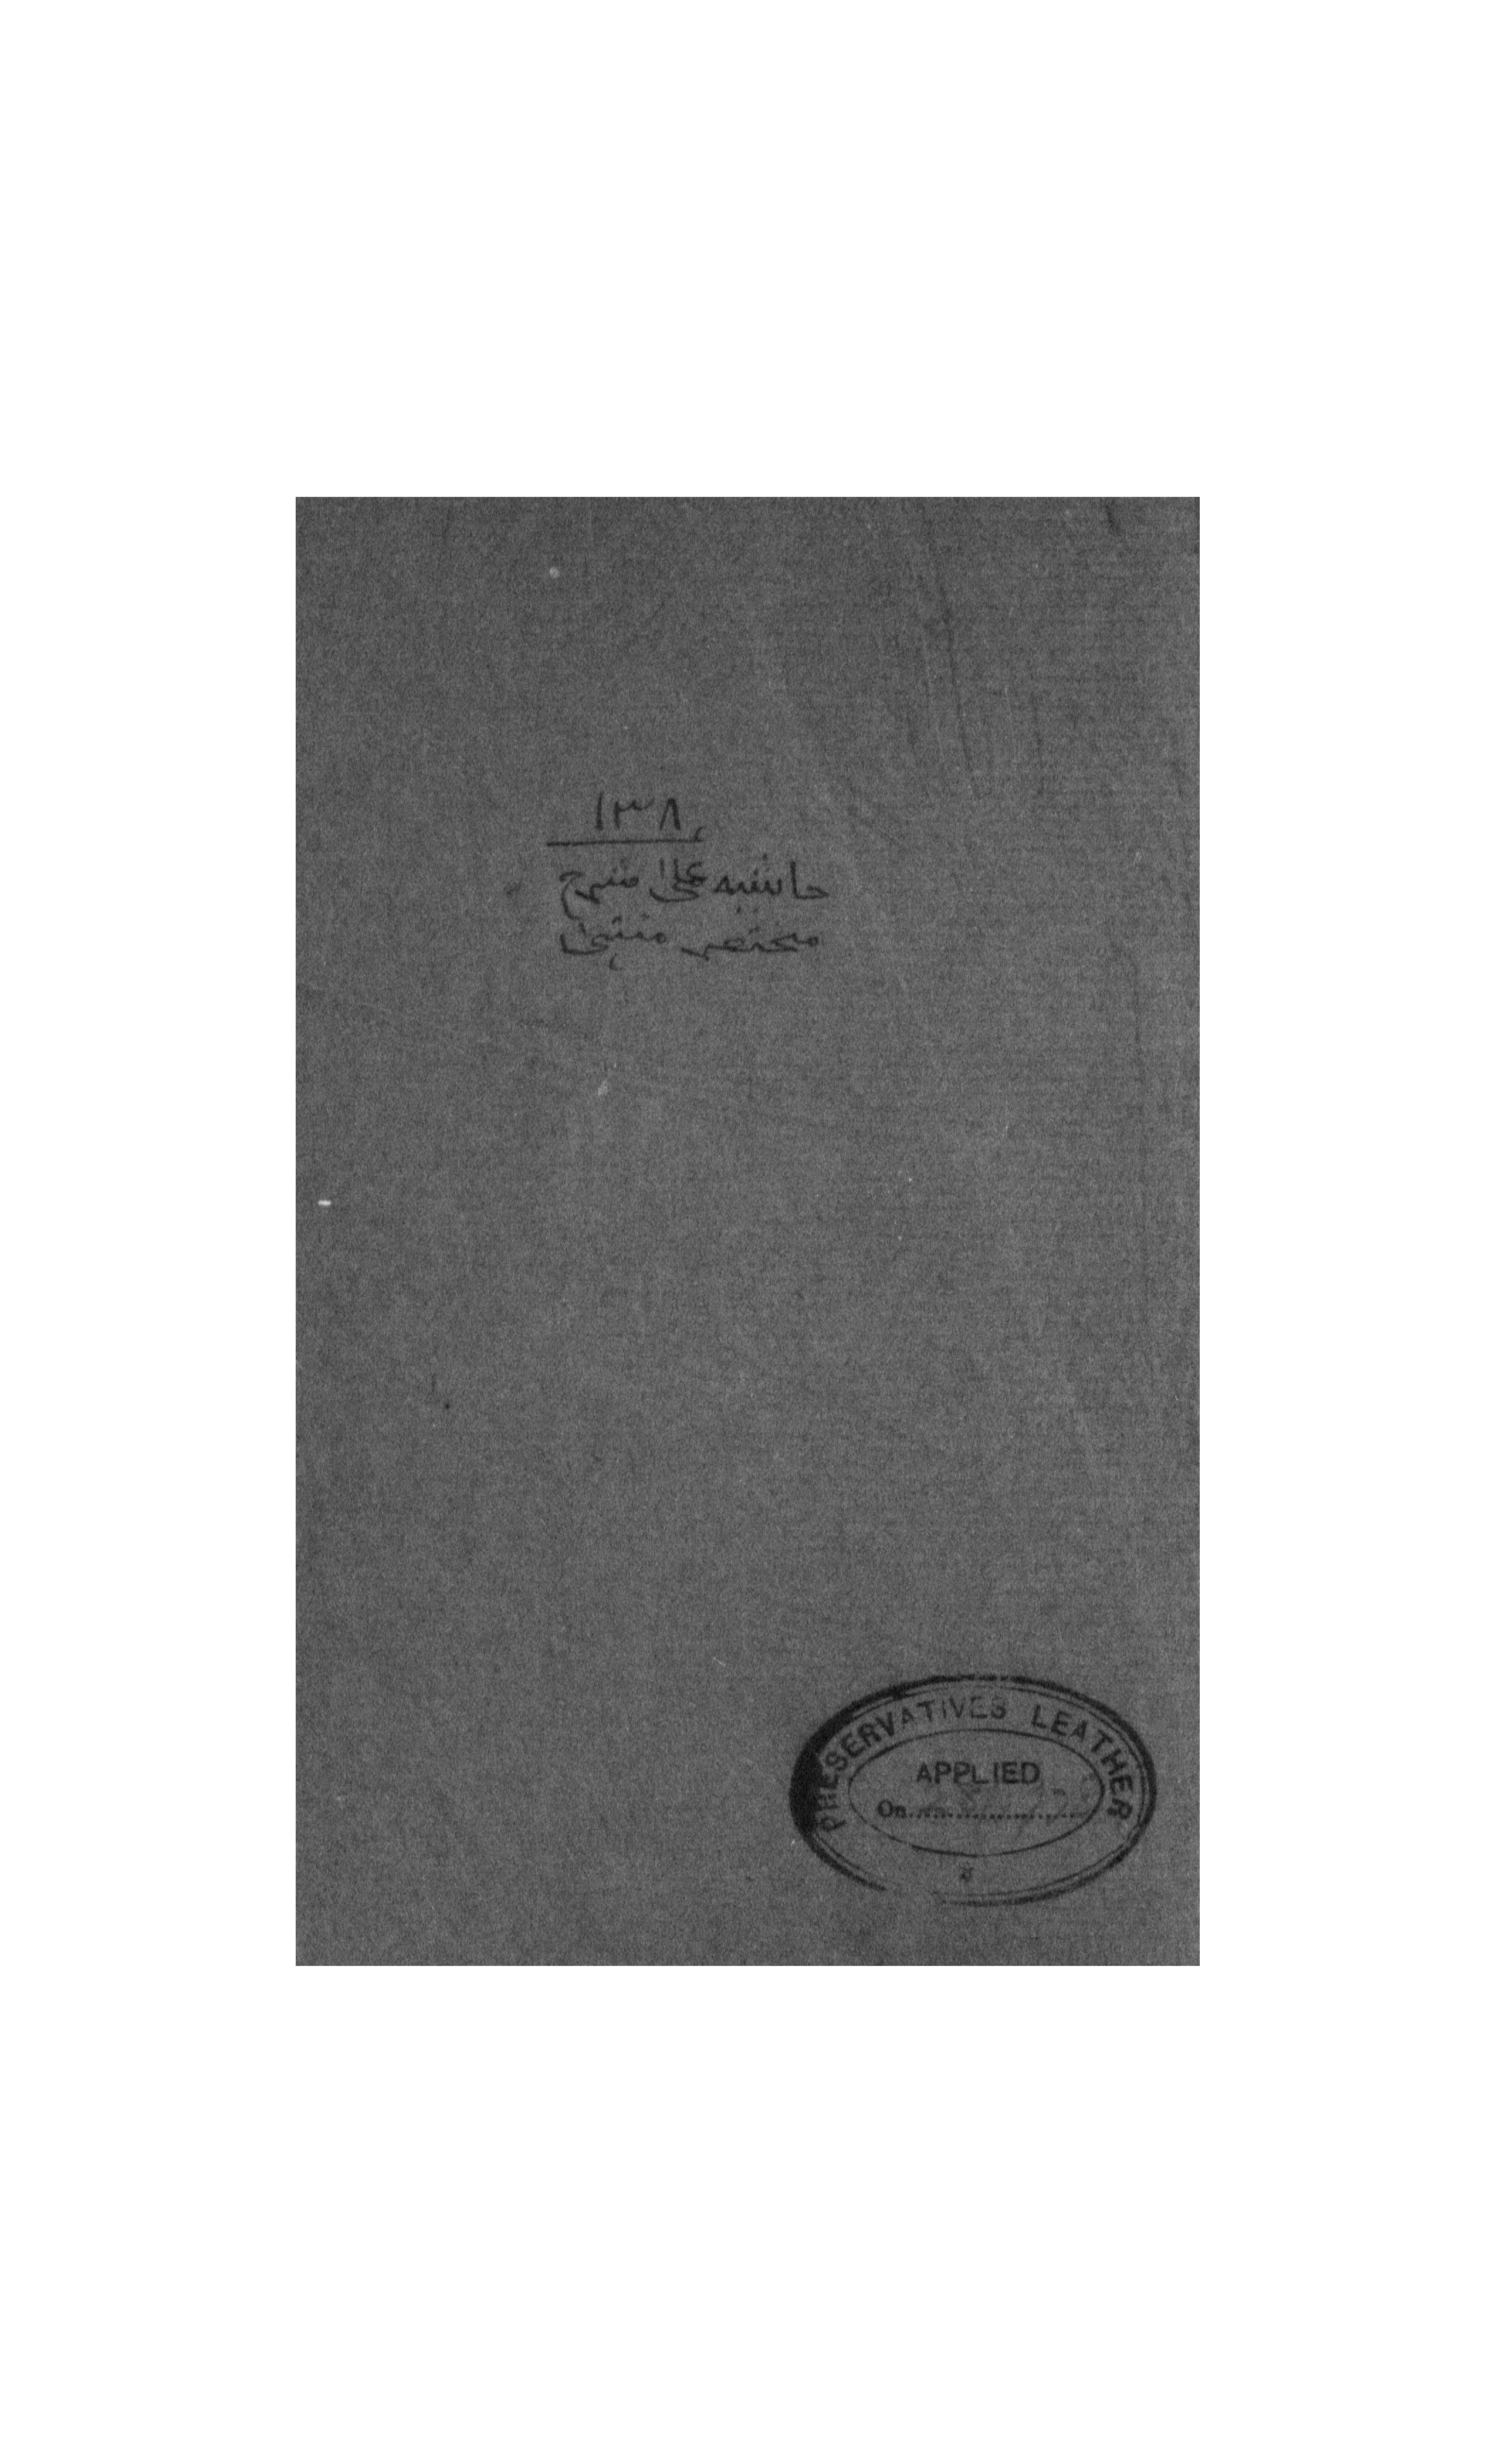 ١٣٨
حاشيه على شرح
مختصر منتهى
PRESERVATIVES LEATHER
APPLIED
On